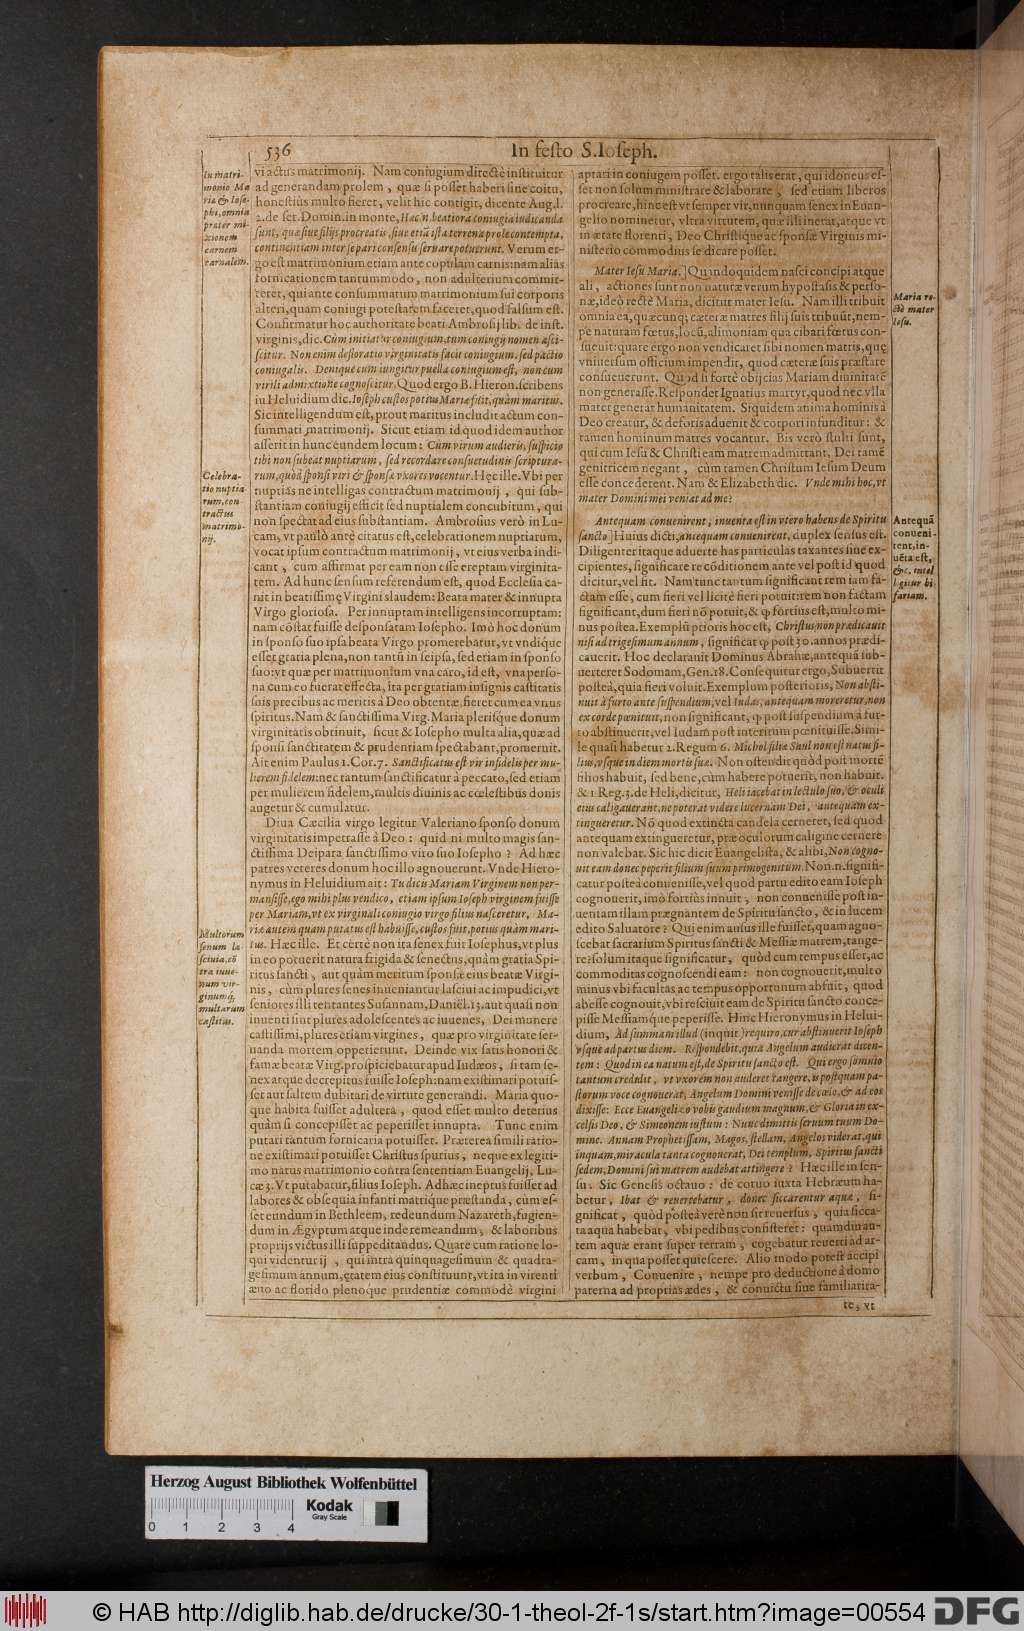 536
In festo S. Ioseph.
In matri-
monio Ma
ria & Iose-
phi, omnia
præter mi-
xtionem
carnem
carnalem.
vi actus matrimonij. Nam coniugium directè instituitur
ad generandam prolem, quæ si posset haberi sine coitu,
honestius multo fieret, velit hic contigit, dicente Aug. l.
2. de ser. Domin. in monte, Hac.n. beatiora coniugia iudicanda
sunt, quæ siue filijs procreatis, siue etiã ista terrena prole contempta,
continentiam inter se pari consensu seruare potuerunt. Verum er-
go est matrimonium etiam ante copulam carnis: nam aliàs
fornicationem tantummodo, non adulterium commit-
teret, qui ante consummatum matrimonium sui corporis
alteri, quam coniugi potestatem faceret, quod falsum est.
Confirmatur hoc authoritate beati Ambrosij lib. de inst.
virginis, dic. Cùm initiatur coniugium, tum coniugij nomen asci-
scitur. Non enim defloratio virginitatis facit coniugium, sed pactio
coniugalis. Denique cum iungitur puella coniugium est, non cum
virili admixtione cognoscitur. Quod ergo B. Hieron. scribens
in Heluidium dic. Ioseph custos potius Mariæ fuit, quàm maritus.
Sic intelligendum est, prout maritus includit actum con-
summati matrimonij. Sicut etiam id quod idem author
asserit in hunc eundem locum: Cùm virum audieris, suspicio
tibi non subeat nuptiarum, sed recordare consuetudinis scriptura-
rum, quòd sponsi viri & sponsæ vxores vocentur. Hęc ille. Vbi per
nuptias ne intelligas contractum matrimonij, qui sub-
stantiam coniugij efficit sed nuptialem concubitum, qui
non spectat ad eius substantiam. Ambrosius verò in Lu-
cam, vt paulò antè citatus est, celebrationem nuptiarum,
vocat ipsum contractum matrimonij, vt eius verba indi-
cant, cum affirmat per eam non esse ereptam virginita-
tem. Ad hunc sensum referendum est, quod Ecclesia ca-
nit in beatissimę Virgini slaudem: Beata mater & innupta
Virgo gloriosa. Per innuptam intelligens incorruptam:
nam cõstat fuisse desponsatam Iosepho. Imò hoc donum
in sponso suo ipsa beata Virgo promerebatur, vt vndiq́ue
esset gratia plena, non tantũ in seipsa, sed etiam in sponso
suo: vt quæ per matrimonium vna caro, id est, vna perso-
na cum eo fuerat effecta, ita per gratiam insignis castitatis
suis precibus ac meritis à Deo obtentæ, fieret cum ea vnus
spiritus. Nam & sanctissima Virg. Maria plerisque donum
virginitatis obtinuit, sicut & Iosepho multa alia, quæ ad
sponsi sanctitatem & prudentiam spectabant, promeruit.
Ait enim Paulus 1. Cor. 7. Sanctificatus est vir infidelis per mu-
lierem fidelem: nec tantum sanctificatur à peccato, sed etiam
per mulierem fidelem, multis diuinis ac cœlestibus donis
augetur & cumulatur.
Celebra-
tio nuptia
rum, con-
tractus
matrimo-
nij.
Diua Cæcilia virgo legitur Valeriano sponso donum
virginitatis impetrasse à Deo: quid ni multo magis san-
ctissima Deipara sanctissimo viro suo Iosepho? Ad hæc
patres veteres donum hoc illo agnouerunt. Vnde Hiero-
nymus in Heluidium ait: Tu dicis Mariam Virginem non per-
mansisse, ego mihi plus vendico, etiam ipsum Ioseph virginem fuisse
per Mariam, vt ex virginali coniugio virgo filius nasceretur, Ma-
riæ autem quam putatus est habuisse, custos fuit, potius quàm mari-
tus. Hæc ille. Et certè non ita senex fuit Iosephus, vt plus
in eo potuerit natura frigida & senectus, quàm gratia Spi-
ritus sancti, aut quàm meritum sponsæ eius beatæ Virgi-
nis, cùm plures senes inueniantur lasciui ac impudici, vt
seniores illi tentantes Susannam, Daniël. 13. aut quasi non
inuenti sint plures adolescentes ac iuuenes, Dei munere
castissimi, plures etiam virgines, quæ pro virginitate ser-
uanda mortem oppetierunt. Deinde vix satis honori &
famæ beatæ Virg. prospiciebatur apud Iudæos, si tam se-
nex atque decrepitus fuisse Ioseph: nam existimari potuis-
set aut saltem dubitari de virtute generandi. Maria quo-
que habita fuisset adultera, quod esset multo deterius
quàm si concepisset ac peperisset innupta. Tunc enim
putari tantum fornicaria potuisset. Præterea simili ratio-
ne existimari potuisset Christus spurius, neque ex legiti-
mo natus matrimonio contra sententiam Euangelij, Lu-
cæ 3. Vt putabatur, filius Ioseph. Adhæc ineptus fuisset ad
labores & obsequia infanti matrique præstanda, cùm es-
set eundum in Bethleem, redeundum Nazareth, fugien-
dum in Ægyptum atque inde remeandum, & laboribus
proprijs victus illi suppeditandus. Quare cum ratione lo-
qui videntur ij, qui intra quinquagesimum & quadra-
gesimum annum, ętatem eius constituunt, vt ita in virenti
æuo ac florido plenoque prudentiæ commodè virgini
Multorum
senum la-
sciuia, cõ
tra iuue-
num vir-
ginumq́;
multarum
castitas.
aptari in coniugem posset. ergo talis erat, qui idoneus es-
set non solum ministrare & laborare, sed etiam liberos
procreare, hinc est vt semper vir, nunquam senex in Euan-
gelio nominetur, vltra virtutem, quæ illi inerat, atque vt
in ætate florenti, Deo Christique ac sponsæ Virginis mi-
nisterio commodius se dicare posset.
Mater Iesu Maria.] Quandoquidem nasci concipi atque
ali, actiones sunt non naturæ verum hypostasis & perso-
næ, ideò rectè Maria, dicitur mater Iesu. Nam illi tribuit
omnia ea, quæcunq; cæteræ matres filij suis tribuũt, nem-
pè naturam fœtus, locũ, alimoniam qua cibari fœtus con-
sueuit: quare ergo non vendicaret sibi nomen matris, quę
vniuersum officium impendit, quod cæteræ suis præstare
consueuerunt. Quòd si fortè obijcias Mariam diuinitatẽ
non generasse. Respondet Ignatius martyr, quod nec vlla
mater generat humanitatem. Siquidem anima hominis à
Deo creatur, & deforis aduenit & corpori infunditur: &
tamen hominum matres vocantur. Bis verò stulti sunt,
qui cum Iesu & Christi eam matrem admittant, Dei tamẽ
genitricem negant, cùm tamen Christum Iesum Deum
esse concederent. Nam & Elizabeth dic. Vnde mihi hoc, vt
mater Domini mei veniat ad me?
Maria re-
ctè mater
Iesu.
Antequam conuenirent, inuenta est in vtero habens de Spiritu
sancto] Huius dicti, antequam conuenirent, duplex sensus est.
Diligenter itaque aduerte has particulas taxantes siue ex-
cipientes, significare re cõditionem ante vel post id quod
dicitur, vel fit. Nam tunc tantum significant rem iam fa-
ctam esse, cum fieri vel licitè fieri potuit: rem non factam
significant, dum fieri nõ potuit, & q̃ fortius est, multo mi-
nus postea. Exemplũ prioris hoc est, Christus non prædicauit
nisi ad trigesimum annum, significat q̃ post 30. annos prædi-
cauerit. Hoc declarauit Dominus Abrahæ, antequã sub-
uerteret Sodomam, Gen. 18. Consequitur ergo, Subuertit
posteà, quia fieri voluit. Exemplum posterioris, Non absti-
nuit à furto ante suspendium, vel Iudas, antequam moreretur, non
ex corde pœnituit, non significant, q̃ post suspendium à fur-
to abstinuerit, vel Iudam post interitum pœnituisse. Simi-
le quasi habetur 2. Regum 6. Michol filiæ Saul non est natus fi-
lius, vsque in diem mortis suæ. Non ostendit quòd post mortẽ
filios habuit, sed bene, cùm habere potuerit, non habuit.
& 1 Reg. 3. de Heli, dicitur, Heli iacebat in lectulo suo, & oculi
eius caligauerant, ne poterat videre lucernam Dei, antequam ex-
tingueretur. Nõ quod extincta candela cerneret, sed quod
antequam extingueretur, præ oculorum caligine cernere
non valebat. Sic hic dicit Euangelista, & alibi, Non cogno-
uit eam donec peperit filium suum primogenitum. Non.n. signifi-
catur posteà conuenisse, vel quod partu edito eam Ioseph
cognouerit, imò fortiùs innuit, non conuenisse post in-
uentam illam prægnantem de Spiritu sancto, & in lucem
edito Saluatore? Qui enim ausus ille fuisset, quam agno-
scebat sacrarium Spiritus sancti & Messiæ matrem, tange-
re? solum itaque significatur, quòd cum tempus esset, ac
commoditas cognoscendi eam: non cognouerit, multo
minus vbi facultas ac tempus opportunum abfuit, quod
abesse cognouit, vbi resciuit eam de Spiritu sancto conce-
pisse Messiamque peperisse. Hinc Hieronymus in Helui-
dium, Ad summam illud (inquit) requiro, cur abstinuerit Ioseph
vsque ad partus diem. Respondebit, quia Angelum audierat dicen-
tem: Quod in ea natum est, de Spiritu sancto est. Qui ergo somnio
tantum credidit, vt vxorem non auderet tangere, is postquam pa-
storum voce cognouerat, Angelum Domini venisse de cœlo, & ad eos
dixisse: Ecce Euangelizo vobis gaudium magnum, & Gloria in ex-
celsis Deo, & Simeonem iustum: Nunc dimittis seruum tuum Do-
mine. Annam Prophetissam, Magos, stellam, Angelos viderat, qui
inquam, miracula tanta cognouerat, Dei templum, Spiritus sancti
sedem, Domini sui matrem audebat attingere? Hæc ille in sen-
su. Sic Genesis octauo: de coruo iuxta Hebræum ha-
betur, Ibat & reuertebatur, donec siccarentur aquæ, si-
gnificat, quòd posteà verè non sit reuersus, quia sicca-
ta aqua habebat, vbi pedibus consisteret: quamdiu au-
tem aquæ erant super terram, cogebatur reuerti ad ar-
cam, in qua posset quiescere. Alio modo potest accipi
verbum, Conuenire, nempe pro deductione à domo
paterna ad proprias ædes, & conuictu siue familiarita-
te, vt
Antequã
conueni-
rent, in-
uẽta est,
&c. intel
ligitur bi
fariam.
Herzog August Bibliothek Wolfenbüttel
Kodak
Gray Scale
0 1 2 3 4
© HAB http://diglib.hab.de/drucke/30-1-theol-2f-1s/start.htm?image=00554
DFG